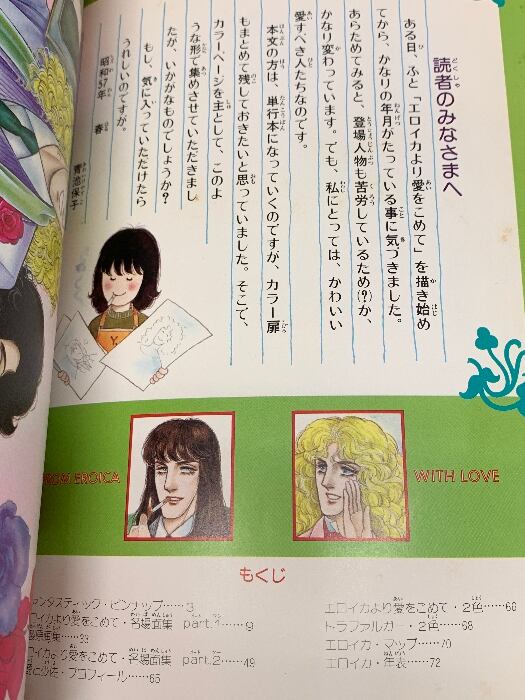 読者のみなさまへ
ある日、ふと「エロイカより愛をこめて」を描き始め
てから、かなりの年月がたっている事に気づきました。
あらためてみると、登場人物も苦労しているため(?)か、
かなり変わっています。でも、私にとっては、かわいい
愛すべき人たちなのです。
本文の方は、単行本になっていくのですが、カラー扉
もまとめて残しておきたいと思っていました。そこで、
カラーページを主として、このよ
うな形で集めさせていただきまし
たが、いかがなものでしょうか?
もし、気に入っていただけたら
うれしいのですが。
昭和57年 春
青池保子
FROM EROICA
WITH LOVE
もくじ
ンタスティック・ピンナップ……3
ロイカより愛をこめて・名場面集 part.1……9
……33
ロイカより愛をこめて・名場面集 part.2……49
と少佐・プロフィール……65
エロイカより愛をこめて・2色……66
トラファルガー・2色……68
エロイカ・マップ……70
エロイカ・年表……72